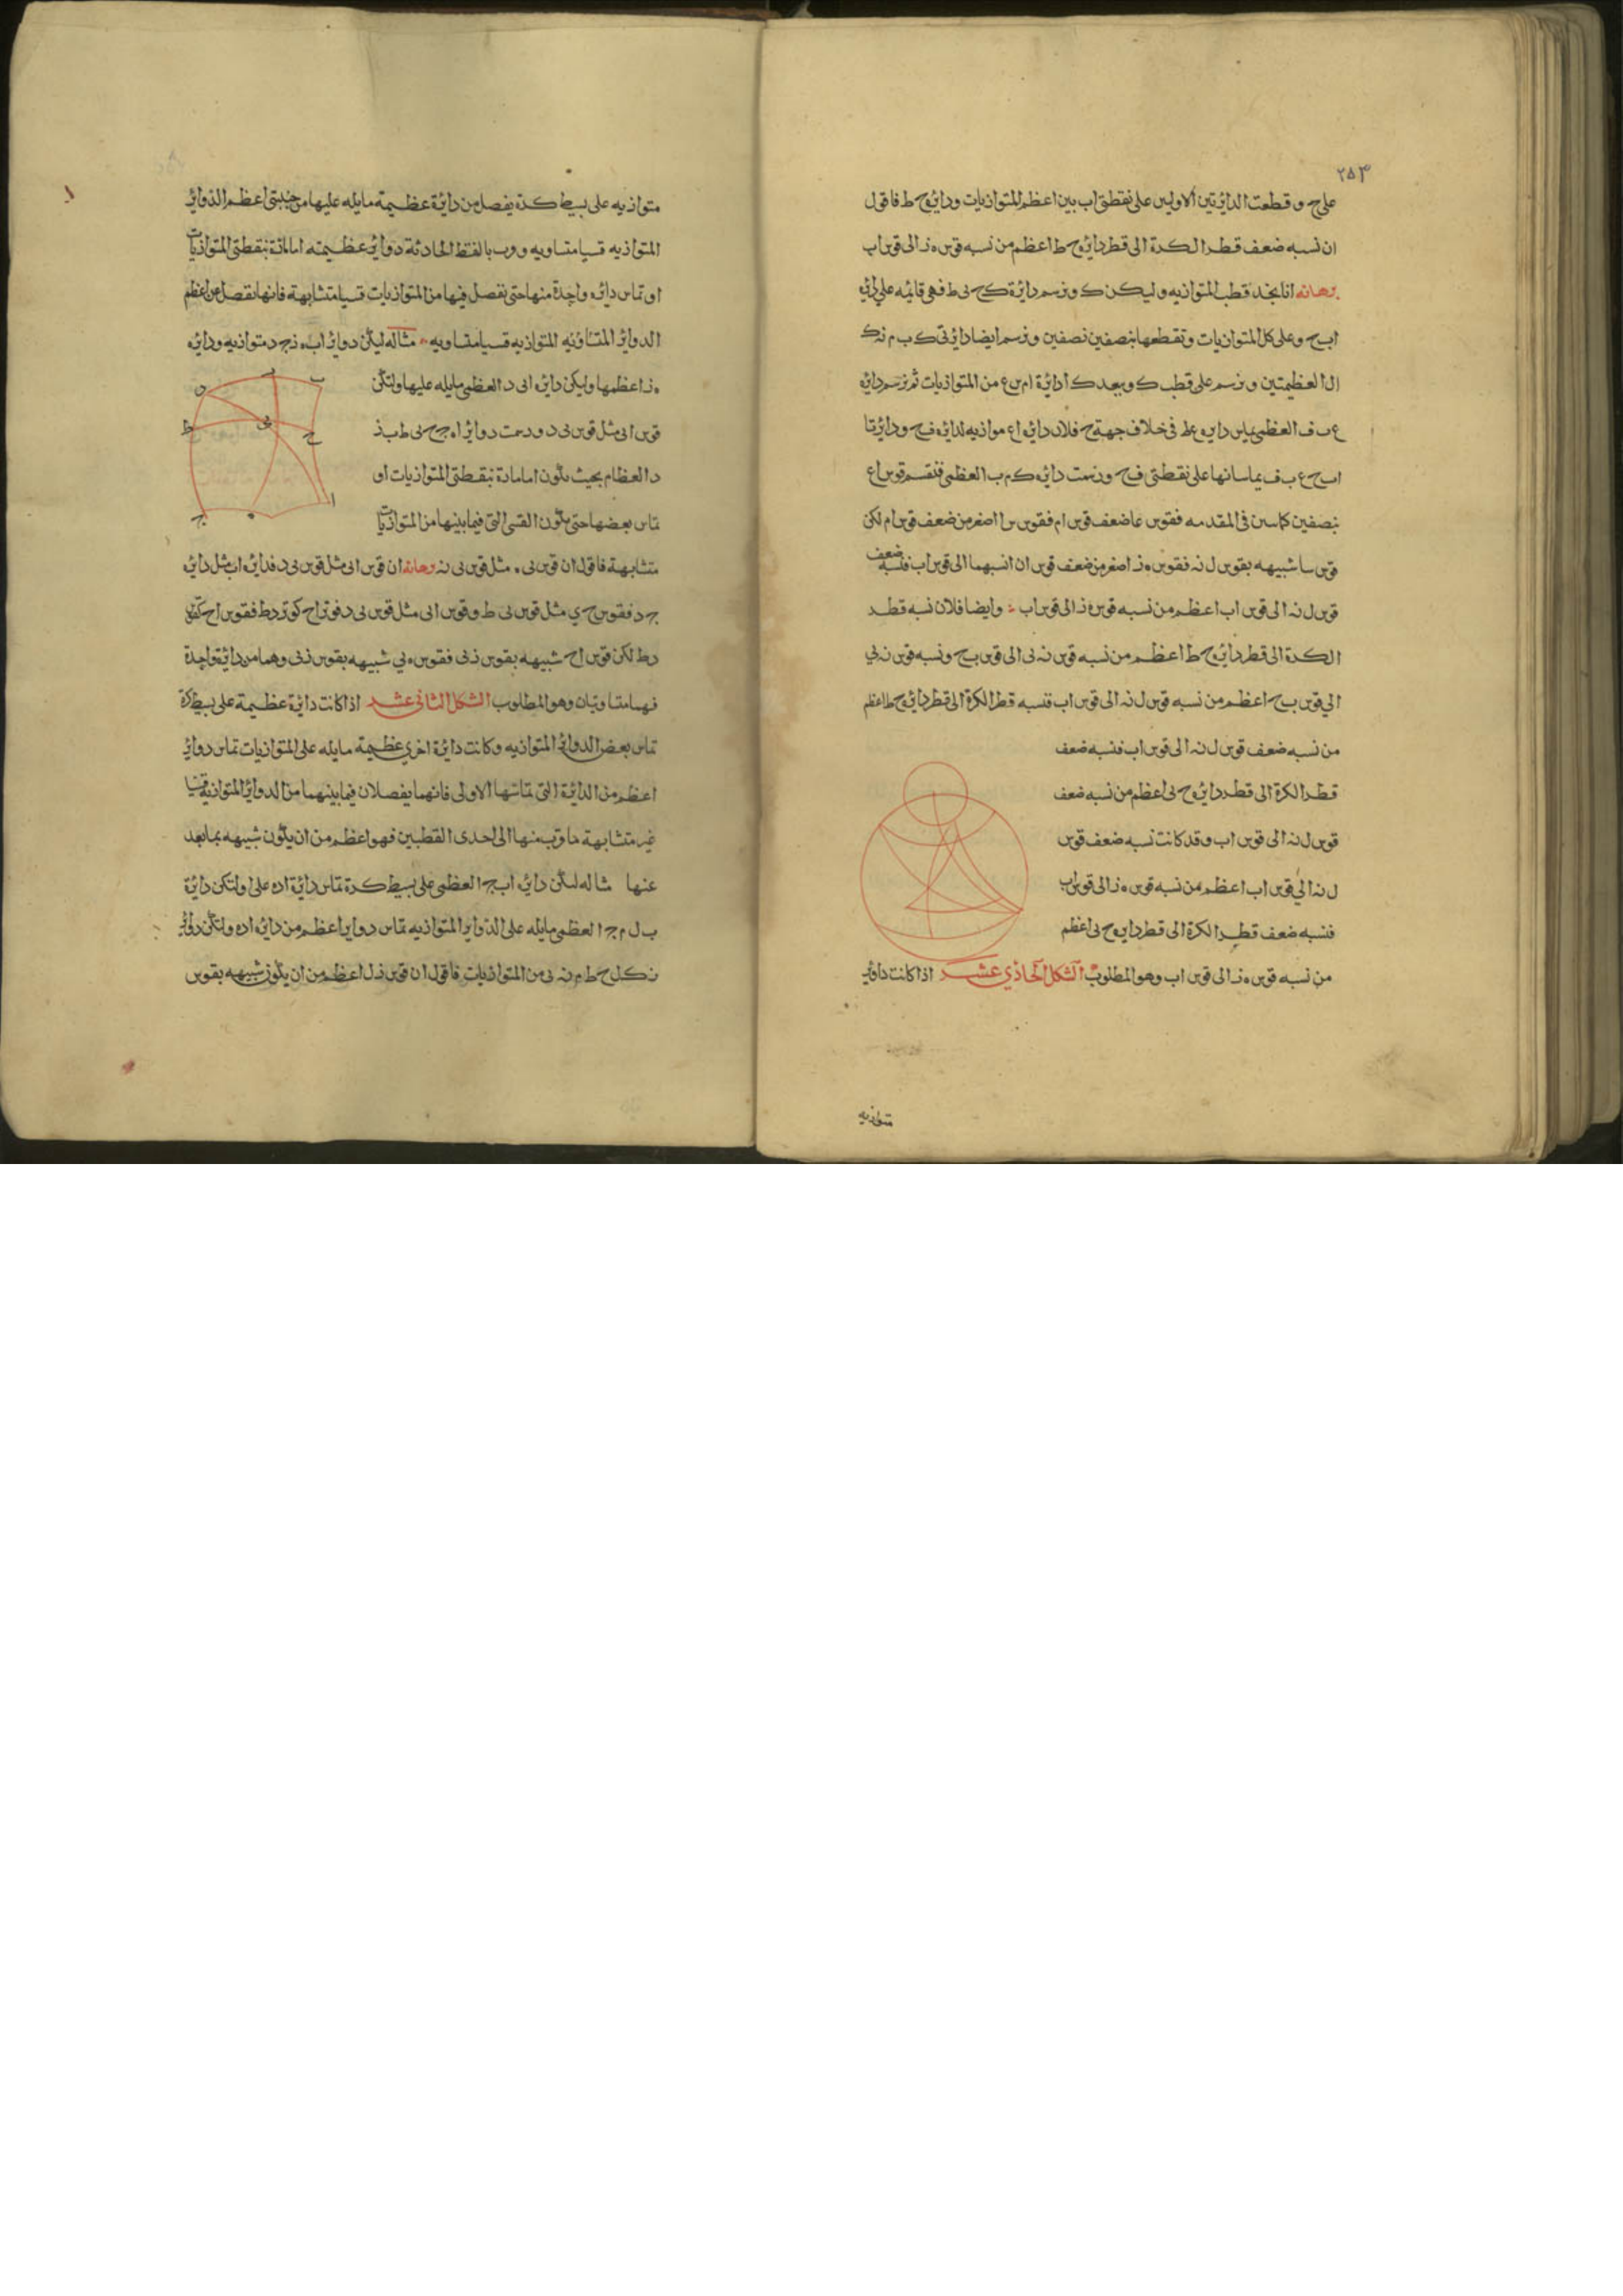 ٢٥٣
على ح وقطعت الدائرتين الاولين على نقطتى اب بين اعظم المتوازيات ودائرة ح ط فاقول
ان نسبه ضعف قطر الكرة الى قطر دائره ح ط اعظم من نسبه قوس ه ز الى قوس اب
برهانه انا نجد قطب المتوازيه وليكن ك ونرسم دائرة ك ح ى ط فهى قائمه على دائرتى
اب ح وعلى كل المتوازيات وتقطعها بنصفين نصفين ونرسم ايضا دائرتى ك ب م ن ك
ال العظيمتين ونرسم على قطب ك وببعد ك ا دائرة ام س ع من المتوازيات ثم نرسم دائره
ع ب ف العظمى يماس دايره ع ط فى خلاف جهة ح فلان دائره اع موازيه لدائره ف ح ودائرتا
اس ح ع ب ف يماسانها على نقطتى ف ح ورسمت دايره ك م ب العظمى فنقسم قوس اع
بنصفين كما بين فى المقدمه فقوس عا ضعف قوس ام فقوس س ا اصغر من ضعف قوس ام لكن
قوس سا شبيهه بقوس ل نه فقوس ه ز اصغر من ضعف قوس ان انسبهما الى قوس اب فنسبه ضعف
قوس ل نه الى قوس اب اعظم من نسبه قوس ه ز الى قوس اب وايضا فلان نسبه قطر
الكرة الى قطر دائره ح ط اعظم من نسبه قوس نه ى الى قوس ب ح ونسبه قوس نه ي
الي قوس ب ح اعظم من نسبه قوس ل نه الى قوس اب فنسبه قطر الكرة الى قطر دائره ح ط اعظم
من نسبه ضعف قوس ل نه الى قوس اب فنسبه ضعف
قطر الكرة الى قطر دايره ح ى اعظم من نسبه ضعف
قوس ل نه الى قوس اب وقد كانت نسبه ضعف قوس
ل نه الي قوس اب اعظم من نسبه قوس ه ز الى قوس اب
فنسبه ضعف قطر الكرة الى قطر دايره ح ى اعظم
من نسبه قوس ه ز الى قوس اب وهو المطلوب الشكل الحاذي عشر اذا كانت دائر
متوازيه
متوازيه على بسيط كرة يفصل من دائرة عظيمة مايله عليها من جنبتى اعظم الدوائر
المتوازيه قسيا متساويه ورب بالنقط الحادثة دوائر عظيمه اما مارة بنقطتى المتوازيات
او تماس دائره واحدة منها حتى تفصل فيها من المتوازيات قسيا متشابهة فانها تفصل من اعظم
الدوائر المتساوئيه المتوازيه قسيا متساويه مثاله ليكن دوائر اب ه ز ج د متوازيه ودائره
ه ز اعظمها وليكن دائره اى د العظمى مايله عليها ولتكن
قوس اى مثل قوس ى د ورسمت دوائر اه ج ح ى ط ب ز
د العظام بحيث يكون اما مارة بنقطتى المتوازيات او
تماس بعضها حتى يكون القسى التى فيما بينها من المتوازيات
متشابهة فاقول ان قوس ى ه مثل قوس ى نه برهانه ان قوس اى مثل قوس ى د فدائره اب مثل دائره
ج د فقوس ح ي مثل قوس ى ط وقوس اى مثل قوس ى د فوتر اح كوتر د ط فقوس اح كقوس
د ط لكن قوس اح شبيهه بقوس ز ى فقوس ه ي شبيهه بقوس ز ى وهما من دائرة واحدة
فهما متساويتان وهو المطلوب الشكل الثانى عشر اذا كانت دائرة عظيمة على بسيط كرة
تماس بعض الدوائر المتوازيه وكانت دائرة اخرى عظيمة مايله على المتوازيات تماس دوائر
اعظم من الدائرة التى تماسها الاولى فانهما يفصلان فيما بينهما من الدوائر المتوازية قسيا
غير متشابهة ما قرب منها الى احدى القطبين فهو اعظم من ان يكون شبيهه بما بعد
عنها مثاله ليكن دائره اب ج العظمى على بسيط كرة تماس دائرة اده على ا ولتكن دائرة
ب ل م ج ا العظمى مايله على الدواير المتوازيه تماس دواير اعظم من دائره اده ولتكن دوائر
ز ك ل ح ط م نه ى من المتوازيات فاقول ان قوس ز ل اعظم من ان يكون شبيهه بقوس